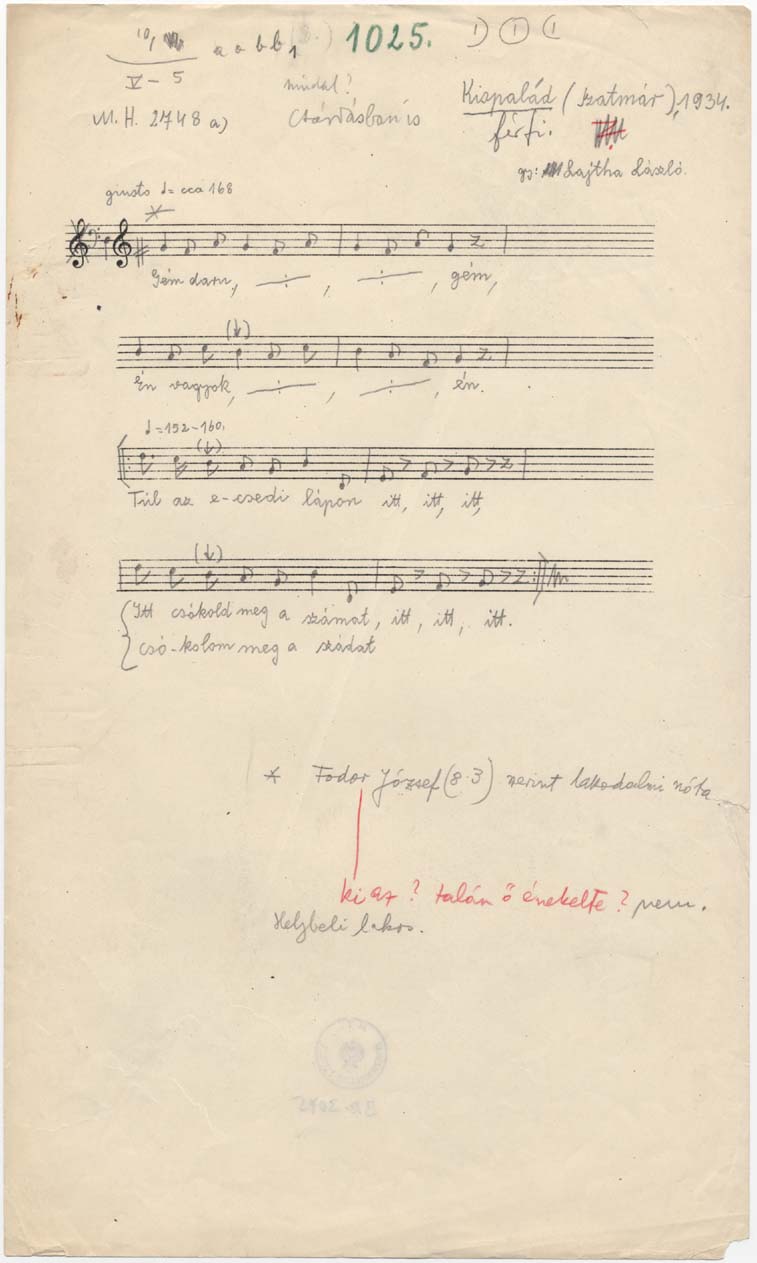 10,
V – 5
a a b b 1
1025.
1) 1 (1
mindal?
M. H. 2748 a)
Csárdásban is
Kispalád (Szatmár), 1934.
férfi.
gy: Lajtha László.
giusto ♩= cca 168
*
Gém daru, —:—, —:—, gém,
(↓)
Én vagyok, —:—, —:—, én.
♩=152–160.
(↓)
Túl az e-csedi lápon itt, itt, itt,
(↓)
Itt csókold meg a számat, itt, itt, itt.
csó-kolom meg a szádat
* Fodor József (8.3) szerint lakodalmi nóta
ki az? talán ő énekelte? nem.
Helybeli lakos.